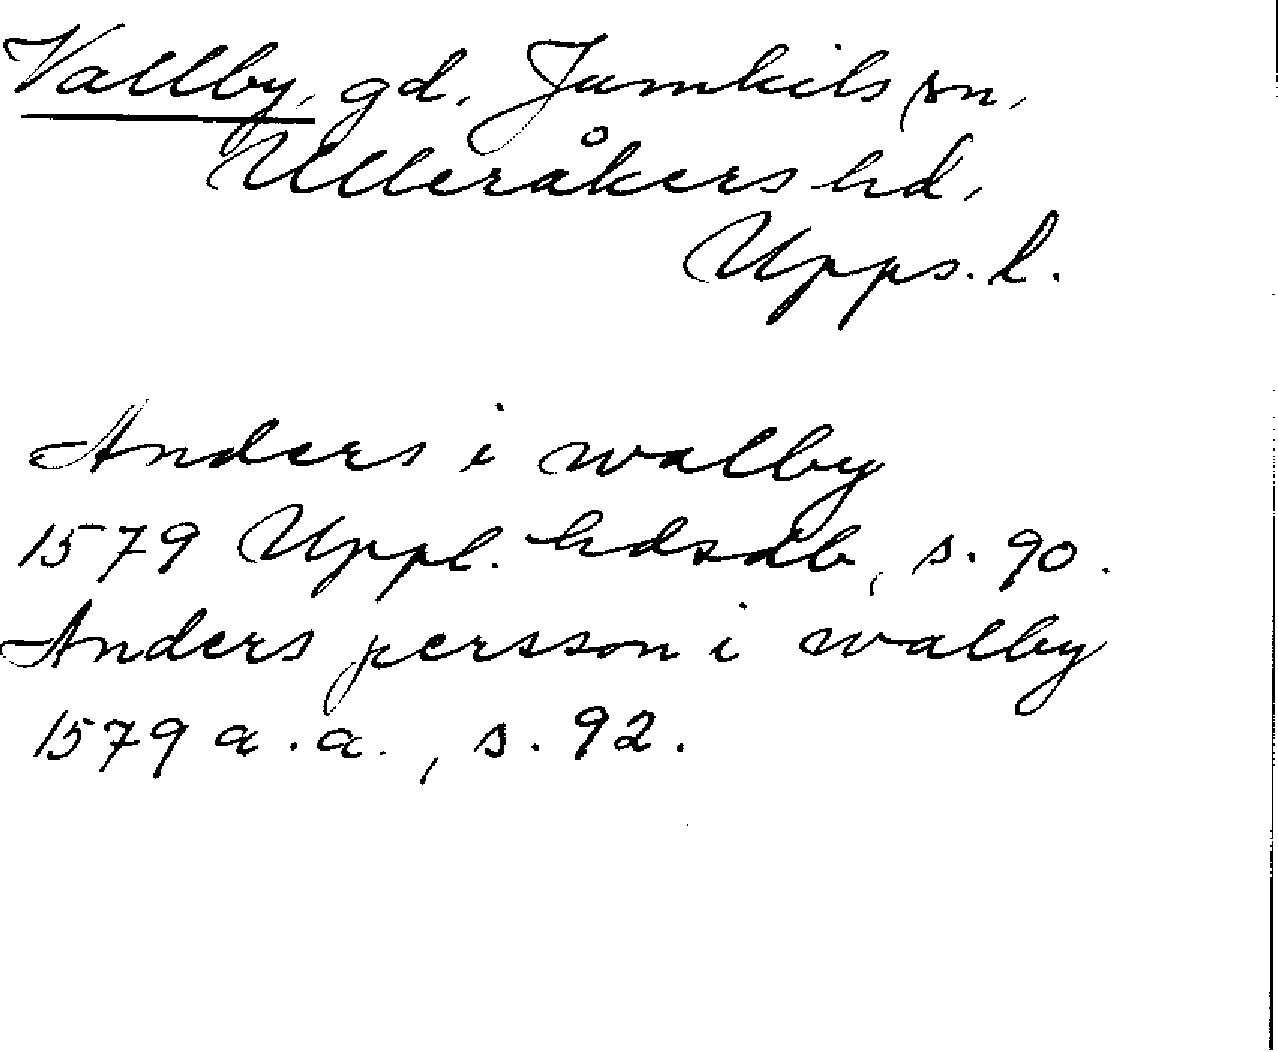 Vallby, gd, Jumkils sn,
Ulleråkers hd,
Upps. l.
Anders i walby
1579 Uppl. hdsdb, s. 90.
Anders persson i walby
1579 a.a., s. 92.